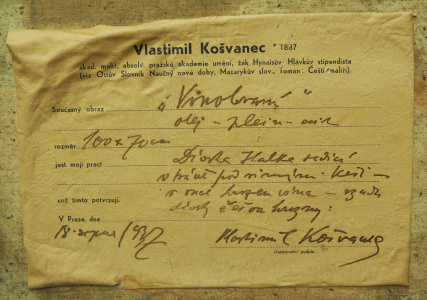 Vlastimil Košvanec * 1887
akad. malíř, absolv. pražské akademie umění, žák Hynaisův, Hlávkův stipendista
(viz Ottův Slovník Naučný nové doby, Masarykův slov., Toman: Čeští malíři).
Současný obraz „Vinobraní“
olej - plein - air
rozměr 100x70 cm
jest mojí prací Dívka Halka sedící
v trávě pod
v ruce hrozen vína –
což tímto potvrzuji. hrozny.
V Praze, dne
18. srpna 1937 Vlastimil Košvanec
vlastnoruční podpis